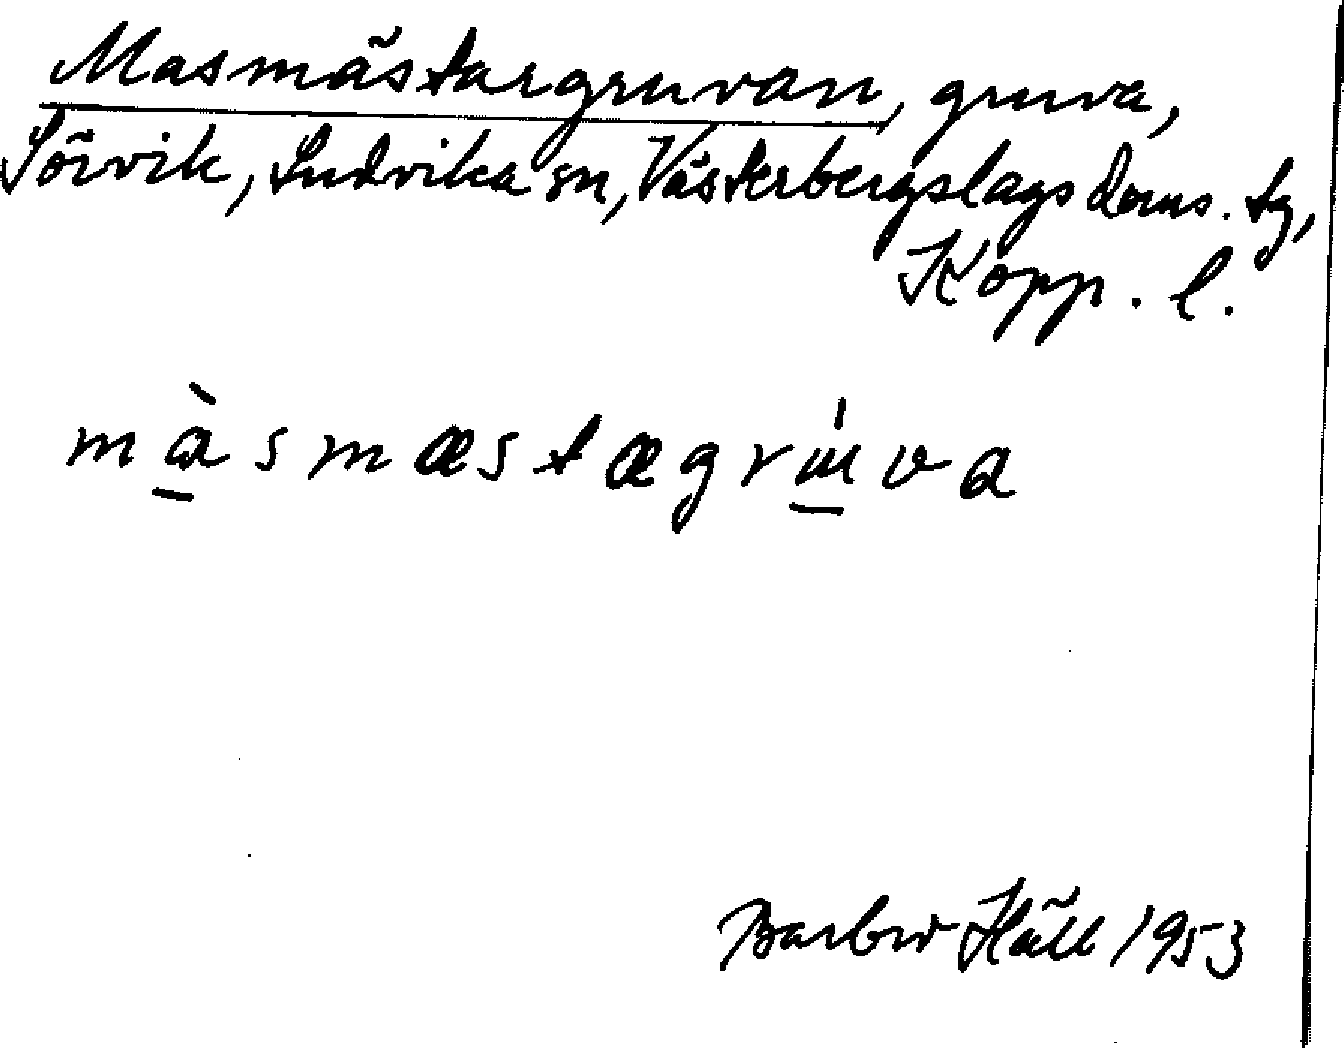 Masmästargruvan, gruva,
Sörvik, Ludvika sn, Västerbergslags doms. tg,
Kopp. l.
màsmæstægrúva
Barbro Häll 1953